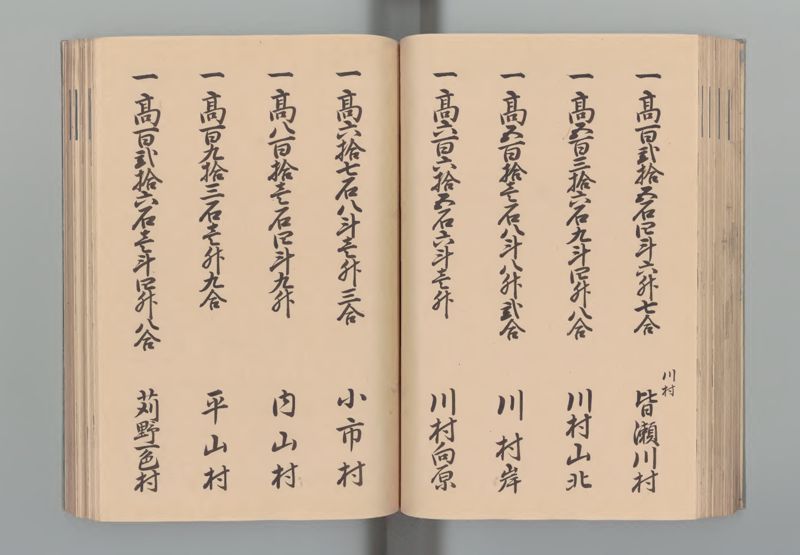 一高百弐拾五石四斗六升七合
川村
皆瀬川村
一高五百三拾六石九斗四升八合
川村山北
一高五百拾壱石八斗八升弐合
川村岸
一高六百六拾五石六斗壱升
川村向原
一高六拾七石八斗壱升三合
小市村
一高八百拾壱石四斗九升
内山村
一高百九拾三石壱升九合
平山村
一高百弐拾六石壱斗四升八合
苅野一色村